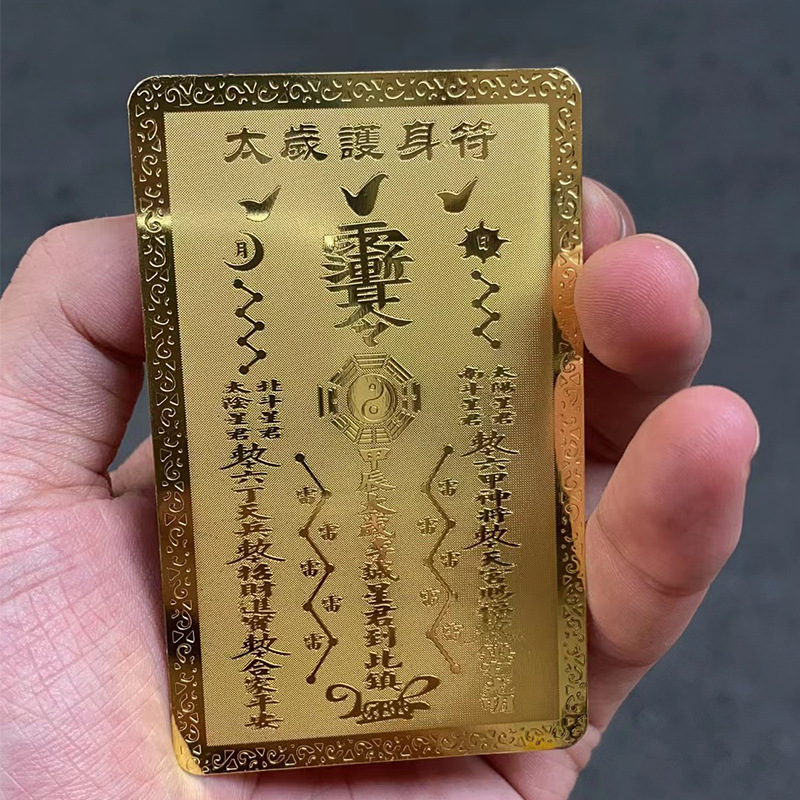 太歲護身符
日
月
太陽星君
南斗星君
敕六甲神將敕天官賜福
甲辰太歲李誠星君到此鎮
雷
雷
雷
雷
雷
雷
雷
雷
北斗星君
太陰星君
敕六丁天兵敕招財進寶敕合家平安